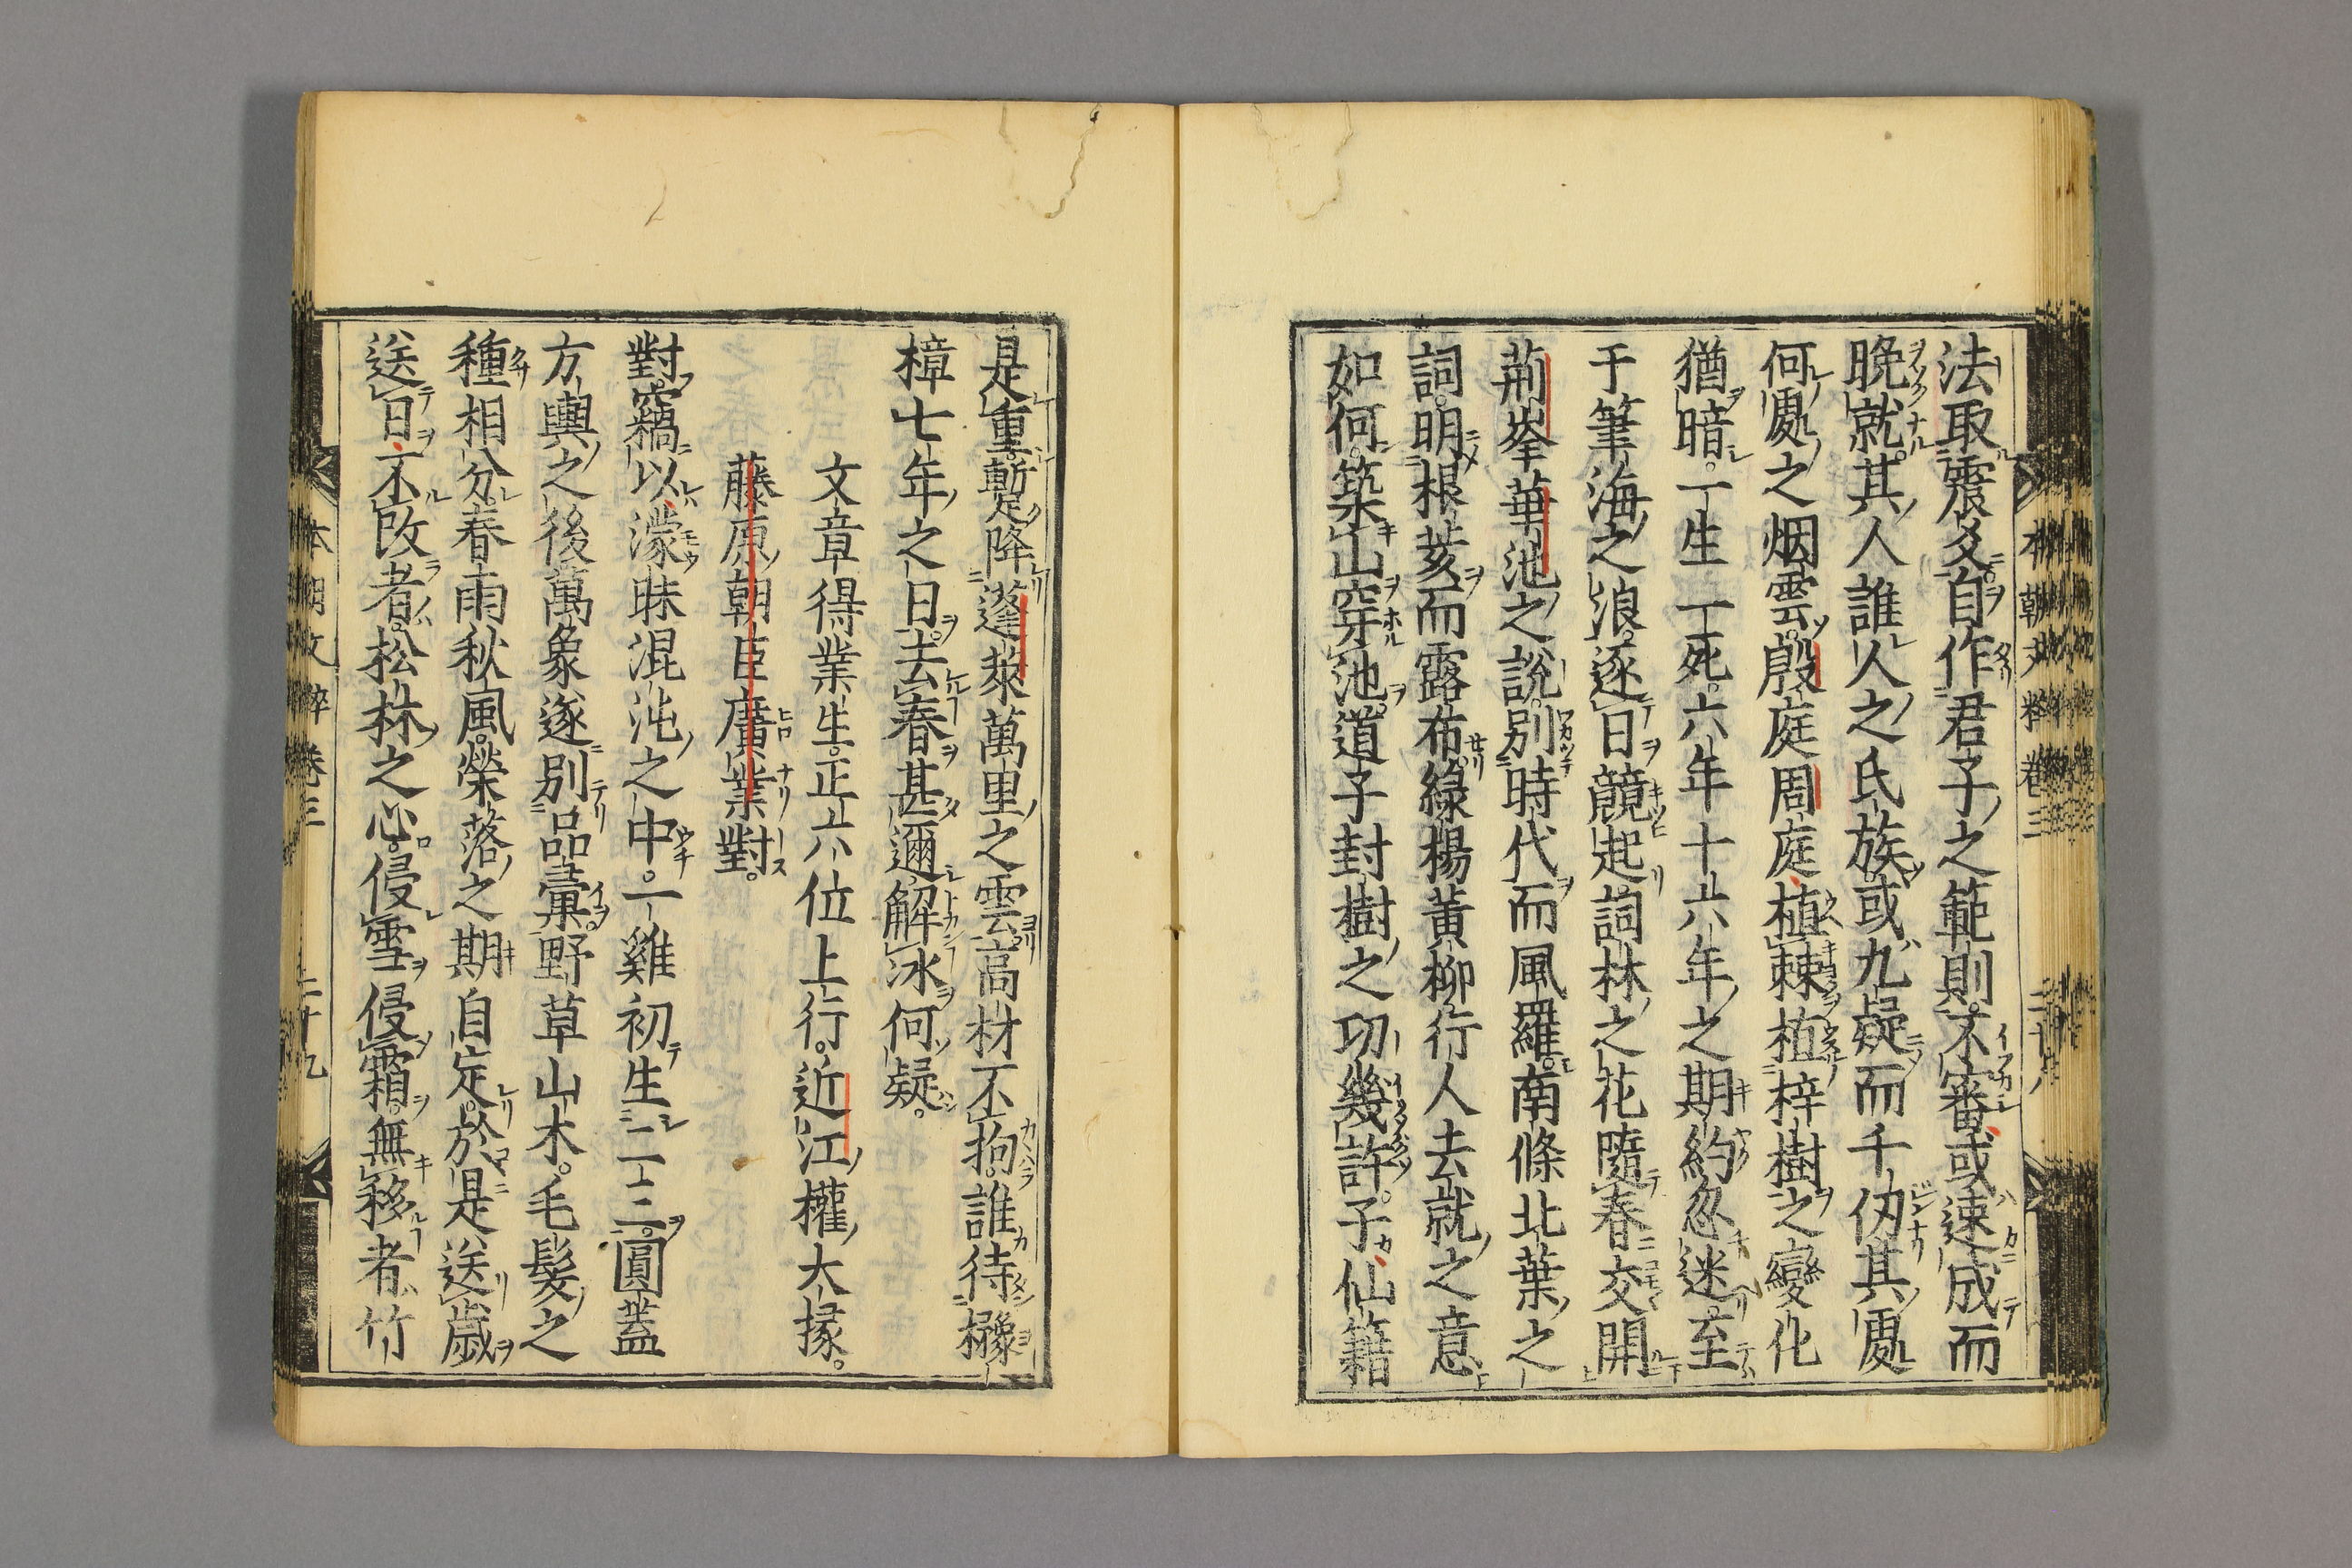 法取震爻自作君子之範則不審或速成而
晩就其人誰人之氏族或九疑而千仭其處
何處之烟雲殷庭周庭植棘植梓樹之變化
猶暗一生一死六年十六年之期約忽迷至
于筆海之浪逐日競起詞林之花隨春交開
荊峯華池之說別時代而風羅南條北葉之
詞明根荄而露布綠楊黃柳行人去就之意
如何築山穿池道子封樹之功幾許子仙籍
是重暫降蓬萊萬里之雲高材不拘誰待櫲
樟七年之日去春甚邇解氷何疑
文章得業生正六位上行近江權大掾
藤原朝臣廣業對
對竊以濛昧混沌之中一雞初生二三圓蓋
方輿之後萬象逐別品彙野草山木毛髮之
種相分春雨秋風榮落之期自定於是送歲
送日不改者松林之心侵雪侵霜無移者竹
本朝文粹卷三
三十九